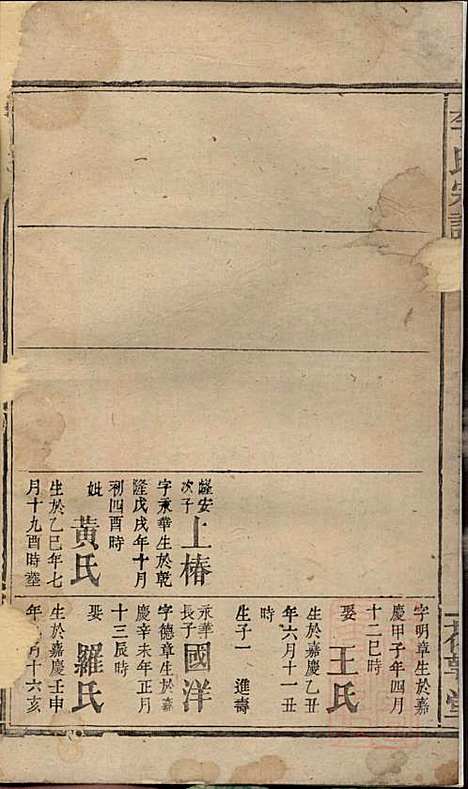 李氏宗譜
懿安
次子
上椿
字永華生於乾
隆戊戌年十月
初四酉時
妣
黃氏
生於乙巳年七
月十九酉時
字明章生於嘉
慶甲子年四月
十二巳時
娶
王氏
生於嘉慶乙丑
年六月十一丑
時
生子一 進壽
永華
長子
國洋
字德章生於嘉
慶辛未年正月
十三辰時
娶
羅氏
生於嘉慶壬申
月十六亥